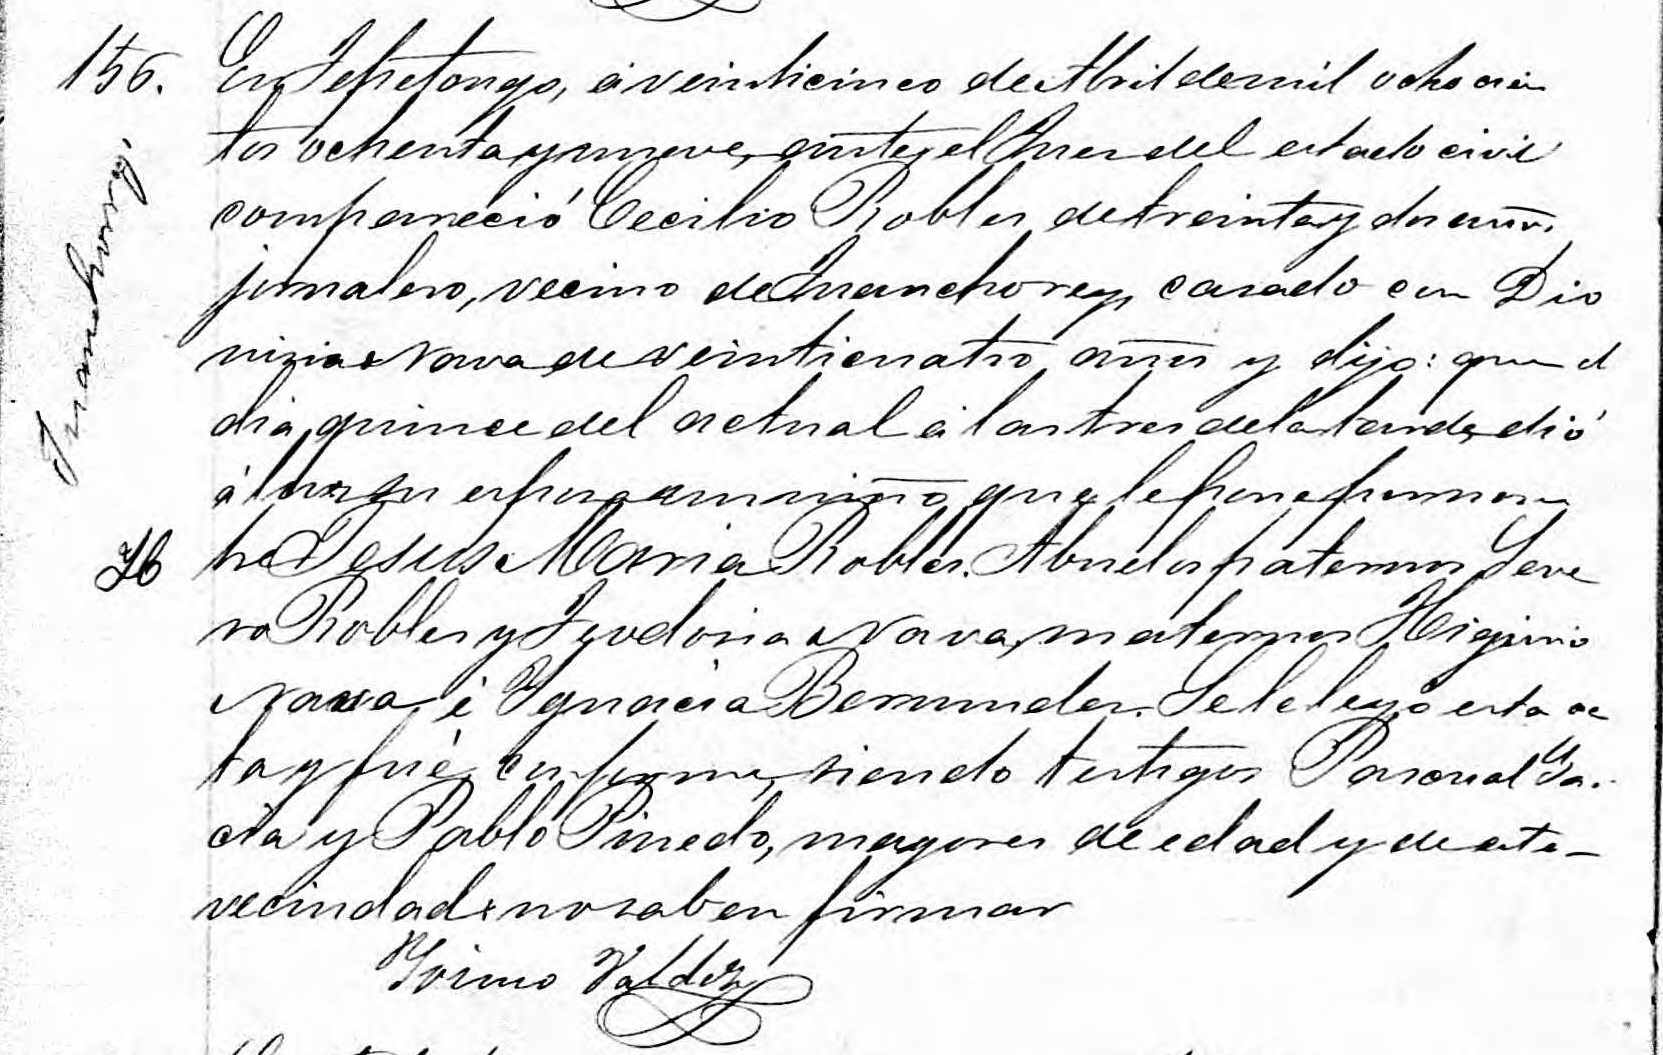 156. En Tepetongo, á veinticinco de Abril de mil ochocien
tos ochenta y nueve, ante el Juez del estado civil
compareció Cecilio Robles de treinta y dos años,
jornalero, vecino de Juanchorey, casado con Dio
nizia Nava de veinticuatro años y dijo: que el
dia quince del actual á las tres de la tarde, dió
á luz su esposa un niño que le pone por nom
bre Jesus Maria Robles. Abuelos paternos Seve
ro Robles y Teodosia Nava, maternos Higinio
Nava é Ygnacia Bermudes. Se le leyó esta ac
ta y fué conforme, siendo testigos Pascual Ga.
cia y Pablo Pinedo, mayores de edad y de esta
vecindad no saben firmar
Valdez
Juanchorey.